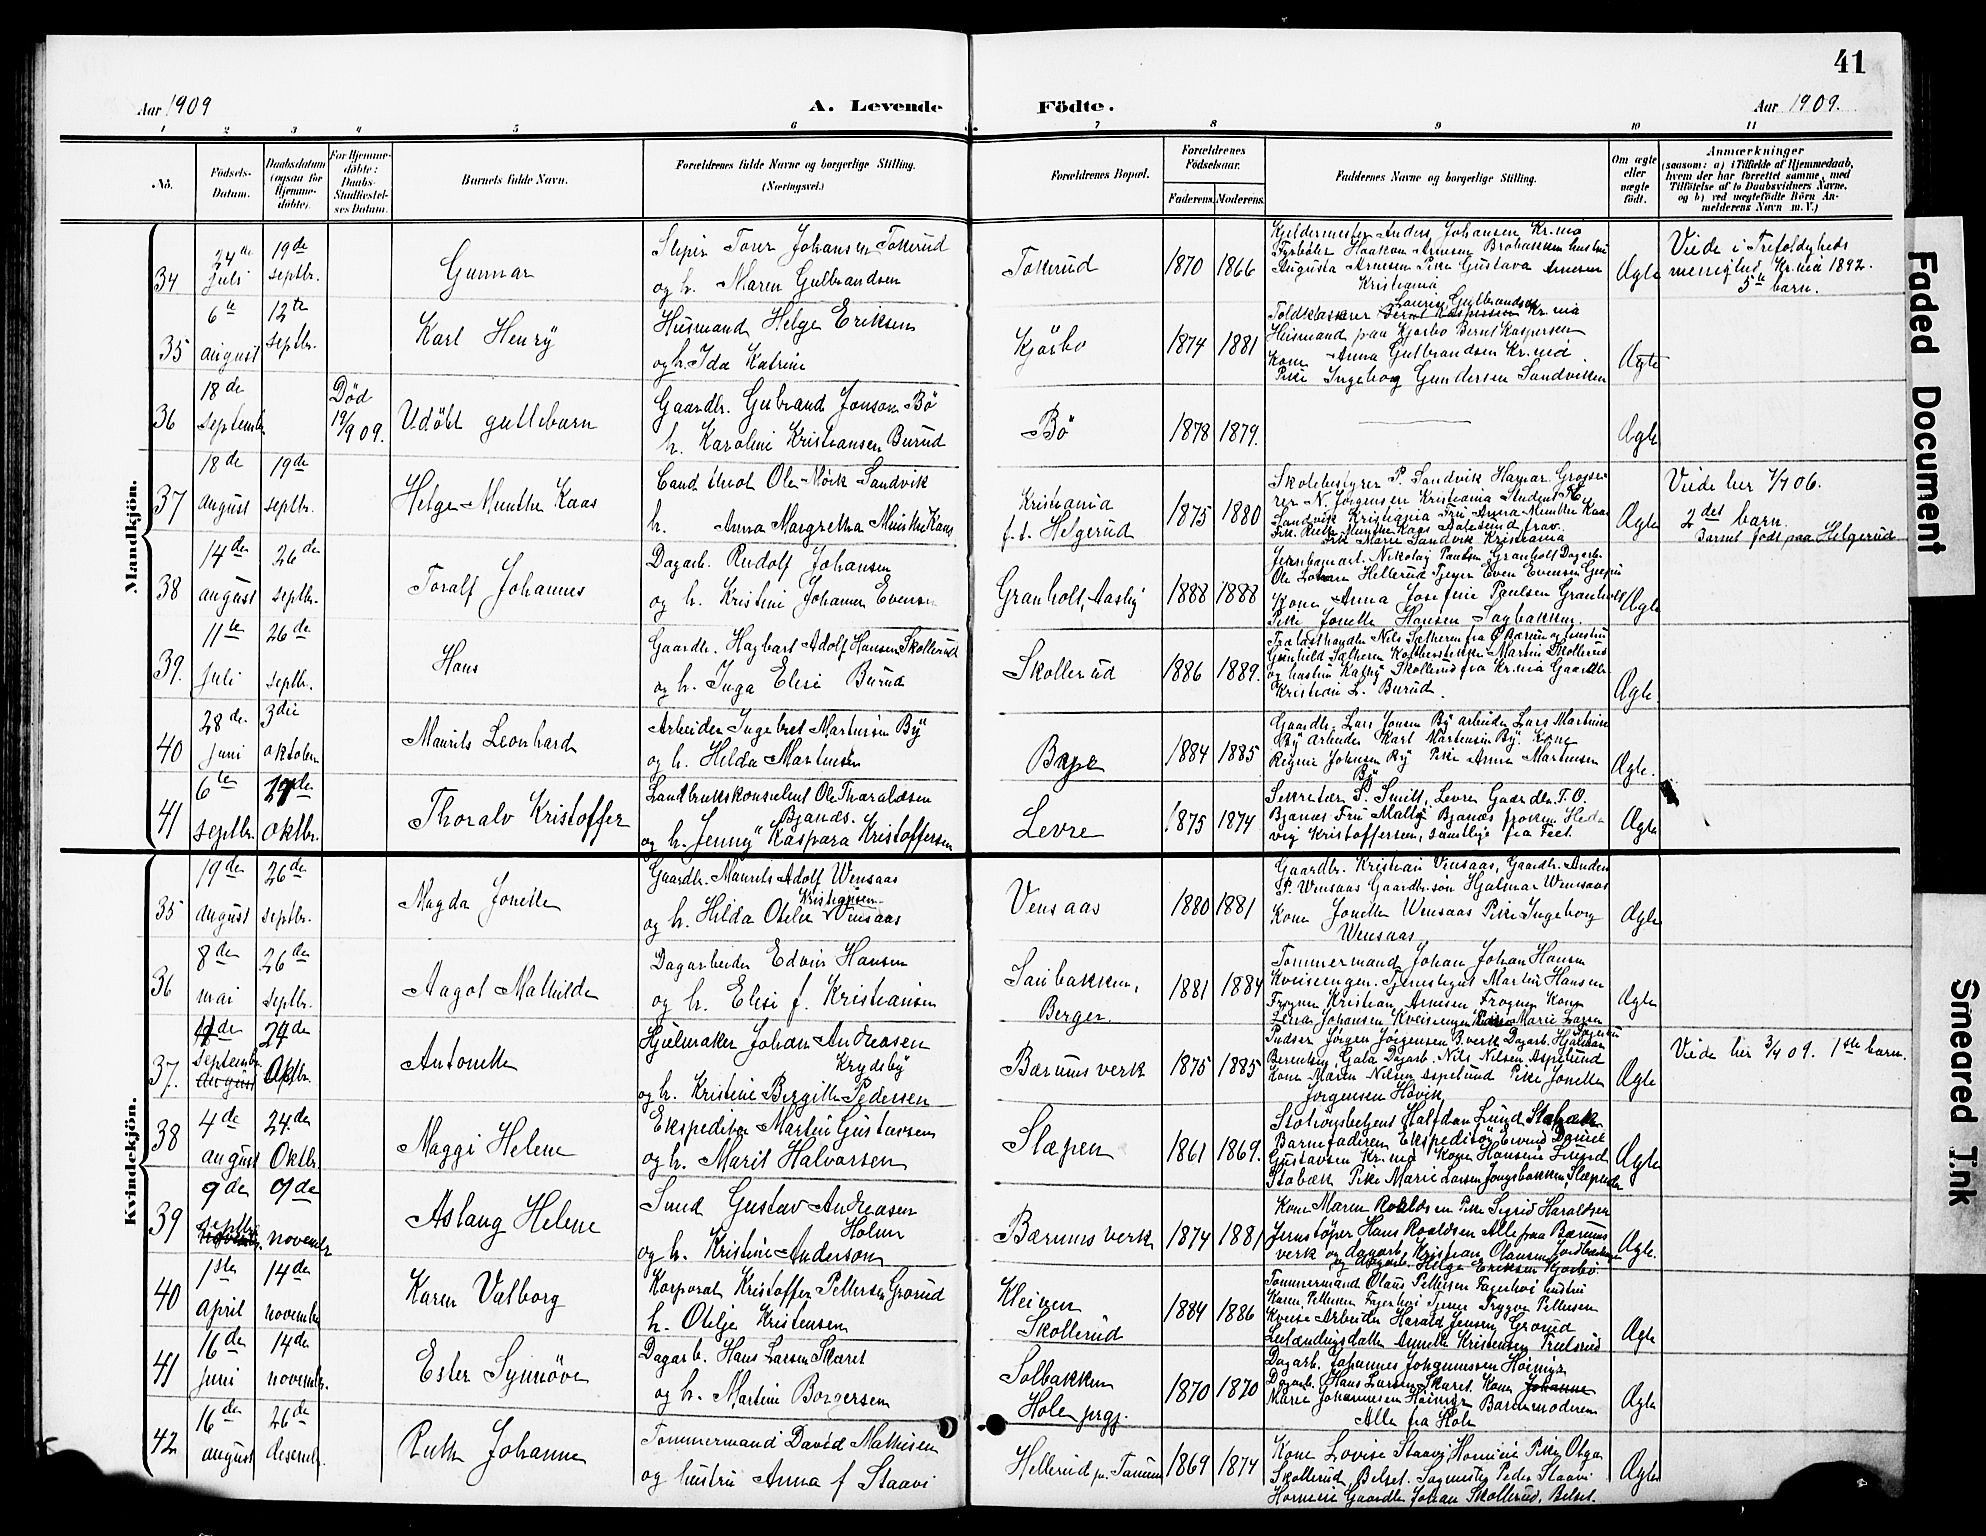 41
Aar 1909
A. Levende
Födte.
Aar 1909.
1 2 3 4 5 6 7 8 9 10 11
No.
Födsels-
Datum.
Daabsdatum
(ogsaa for
Hjemme-
döbte).
For Hjemme-
döbte:
Daabs-
Stadfæstel-
ses Datum.
Barnets fulde Navn.
Forældrenes fulde Navne og borgerlige Stilling.
(Næringsvei.)
Forældrenes Bopæl.
Forældrenes
Födselsaar.
Faderens. Moderens.
Faddernes Navne og borgerlige Stilling.
Om ægte
eller
uægte
födt.
Anmærkninger
(saasom: a) i Tilfælde af Hjemmedaab,
hvem der har forrettet samme, med
Tilföielse af to Daabsvidners Navne,
og b) ved uægtefödte Börn An-
melderens Navn m. V.)
Mandkjön.
34
24de
juli
19de
septbr.
Gunnar
Johansen Tokerud
og h. Maren Gulbrandsen
Tokerud
1870 1866
Kjeldermester Anders Johansen Kr.nia
Fyrbøter Haakon Arnesen Brobakken hustru
Augusta Arnesen Pike Gustava Arnesen
Kristiania
Ægte
Viede i Trefoldigheds
menighed Kr.nia 1892.
5te barn.
35
6te
august
12te
septbr.
Karl Henrÿ
Husmand Helge Eriksen
og h. Ida Katrine
Kjørbo
1874 1881
Laurits Gulbrandsen
Toldklasserer Bernt Kaspersen Kr.nia
Husmand paa Kjørbo Bernt Kaspersen
Kone Anna Gulbrandsen Kr.nia.
Pike Ingeborg Gundersen Sandviken
Ægte
36
18de
september
Død
19/9 09.
Udöbt guttebarn
Gaardbr. Gulbrand Jonsen Bö
h. Karoline Kristiansen Burud
Bö
1878 1879.
Ægte
37
18de
august
19de
septbr.
Helge Munthe Kaas
Cand theol Ole Mörk Sandvik
h. Anna Margretha Munthe Kaas
Kristiania
f. t. Helgerud
1875 1880
Skolebestyrer P. Sandvik Hamar. Grosse-
rer N. Jørgensen Kristiania Student
Sandvik Kristiania Fru Anna Munthe Kaas
Frk. Munthe Kaas Aalesund
Fru Marie Sandvik Kristiania
Ægte
Viede her 7/7 06.
2det barn.
Barnet født paa Helgerud
38
14de
august
26de
septbr.
Toralf Johannes
Dagarb. Rudolf Johansen
og h. Kristine Johanne Evensen
Granholt, Aasby
1888 1888
Jernbanearb. Nikolay Paulsen Granholt Dagarb.
Ole Hellerud Even Evensen
Kone Anna Josefine Paulsen Granholt
Pike Jonette Hansen Sagbakken
Ægte
39.
11te
juli
26de
septbr.
Hans
Gaardbr. Hagbart Adolf Hansen Skollerud
og h. Inga Elise Burud
Skollerud
1886 1889.
Trælasthandler Nils Sætheren fra Ø Bærum og hustru
Gunhild Sætheren Martin Skollerud
og hustru Skollerud fra Kr.nia Gaardbr
Kristian L. Burud.
Ægte.
40
28de
juni
3die
oktober
Maurits Leonhard
Arbeider Ingebret Martinsen Bÿ
og h. Helda Martensen
1884 1885
Gaardbr. Lars Jonsen Bÿ arbeider Lars Martinsen
Bÿ arbeider Karl Martensen Bÿ. Kone
Regine Johnsen Bÿ Pike Anna Martensen
Bÿ
Ægte.
41
6te
septbr.
septbr
oktbr.
Thoralv Kristoffer
Landbrukskonsulent Ole Tharaldsen
Bjanæs.
og h. Jennÿ Kaspara Kristoffersen
Levre
1875 1874
Sekretær S. Smitt, Levre Gaardbr. T. O.
Bjanæs Fru Mally Bjanæs frøken Hed-
vig Kristoffersen, samtlige fra Feet.
Ægte
Kvindekjön.
35
19de
august
26de
septbr.
Magda Jonette
Gaardbr. Maurits Adolf Wensaas
Kristiansen
og h. Hilda Otelie Wensaas
Vensaas
1880 1881
Gaardbr. Kristian Vensaas, Gaardbr. Anders
P. Wensaas Gaardbr.søn Hjalmar Wensaas
Kone Jonette Wensaas Pike Ingeborg
Wensaas
Ægte
36
8de
mai
26de
septbr.
Aagot Mathilde
Dagarbeider Edvin Hansen
og h. Elise f. Kristiansen
Sanbakken,
Berger.
1881 1884
Tømmermand Johan Johan Hansen
Kveisengen. Tjenestegut Martin Hansen
Frogner Kristian Arnesen Frogner Kone
Lena Johansen Kveisengen Marie Larsen
Ægte
37.
11de
september
august
24de
Oktbr.
Antonette
Hjulmaker Johan Andreasen
Krydsbÿ
og h. Kristine Bergitte Pedersen
Bærums verk
1875 1885
Pudser Jørgen Jørgensen B.verk Dagarb. Hjalmar
Berenberg Gata Dagarb. Nils Nilsen Aspelund
Kone Maren Nilsen Aspelund Pike Jonette
Jørgensen Høvik
Ægte
Viede her 3/4 09. 1ste barn.
38
4de
august
24de
Oktbr.
Maggi Helene
Ekspeditør Martin Gustavsen
og h. Marit Halvorsen
Slæpen
1861 1869.
Halfdan Lund Stabæk
Barnefaderen Ekspeditør Eivind Daniel
Gustavsen Kr.nia Kone Hansine Lund
Stabæk Pike Marie Larsen Slæpenden
Ægte
39
9de
septbr.
7de
novembr
Aslaug Helene
Smed Gustav Andreasen
Holm
og h. Kristine Anderson
Bærums verk
1874 1881
Kone Maren Roaldsen Pike Sigrid Haraldsen
Jernstøper Hans Roaldsen Alle paa Bærums
verk og dagarb. Kristian Olausen Jordbækken
og dagarb. Helge Eriksen Kjørbo.
Ægte.
40
1ste
april
14de
november
Karen Valborg
Korporal Kristoffer Pettersen Grorud
h. Otelje Kristensen
Kleiven
Skollerud
1884 1886
Tømmermand Olaus Pettersen Fagerhøi hustru
Karen Pettersen Fagerhøi Trygve Pettersen
Arbeider Harald Jensen Grorud
Annette Kristensen
Ægte
41
16de
juni
14de
novembr.
Ester Synnöve
Dagarb. Hans Larsen Skaret
og h. Martine Borgersen
Solbakken
Hole prgj.
1870 1870
Dagarb. Johannes Johannessen Høimyr
Dagarb. Hans Larsen Skaret. Kone Johanne
Marie Johannesen Høimyr Barnemoderen
Alle fra Hole
Ægte
42
16de
august
26de
desembr.
Ruth Johanne
Tømmermand David Mathisen
og hustru Anna f Staavi
Hellerud pr. Tanum
1869 1874
Kone Lovise Staavi Hornæie Pike Olga
Skollerud, Belset. Peder Staavi
Hornæie Gaardbr Johan Skollerud, Belset.
Ægte
Faded Document
Smeared Ink